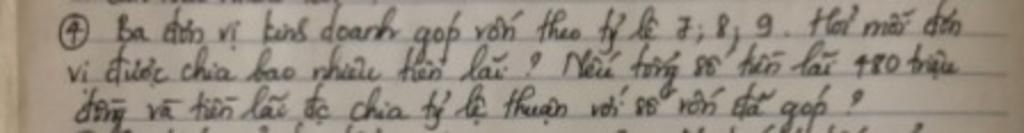 ④ Ba đơn vị kinh doanh góp vốn theo tỷ lệ 7; 8; 9. Hỏi mỗi đơn
vị được chia bao nhiêu tiền lãi? Nếu tổng số tiền lãi 480 triệu
đồng và tiền lãi đc chia tỷ lệ thuận với số vốn đã góp?